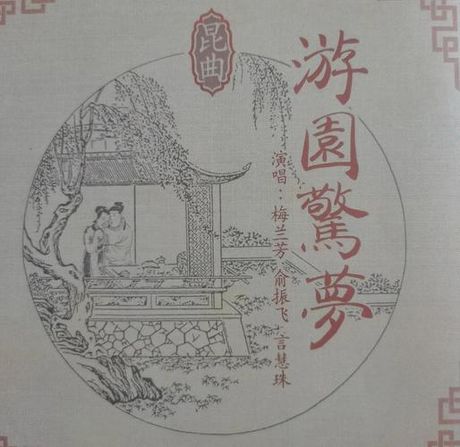 昆曲
游園驚夢
演唱：梅兰芳 俞振飞 言慧珠